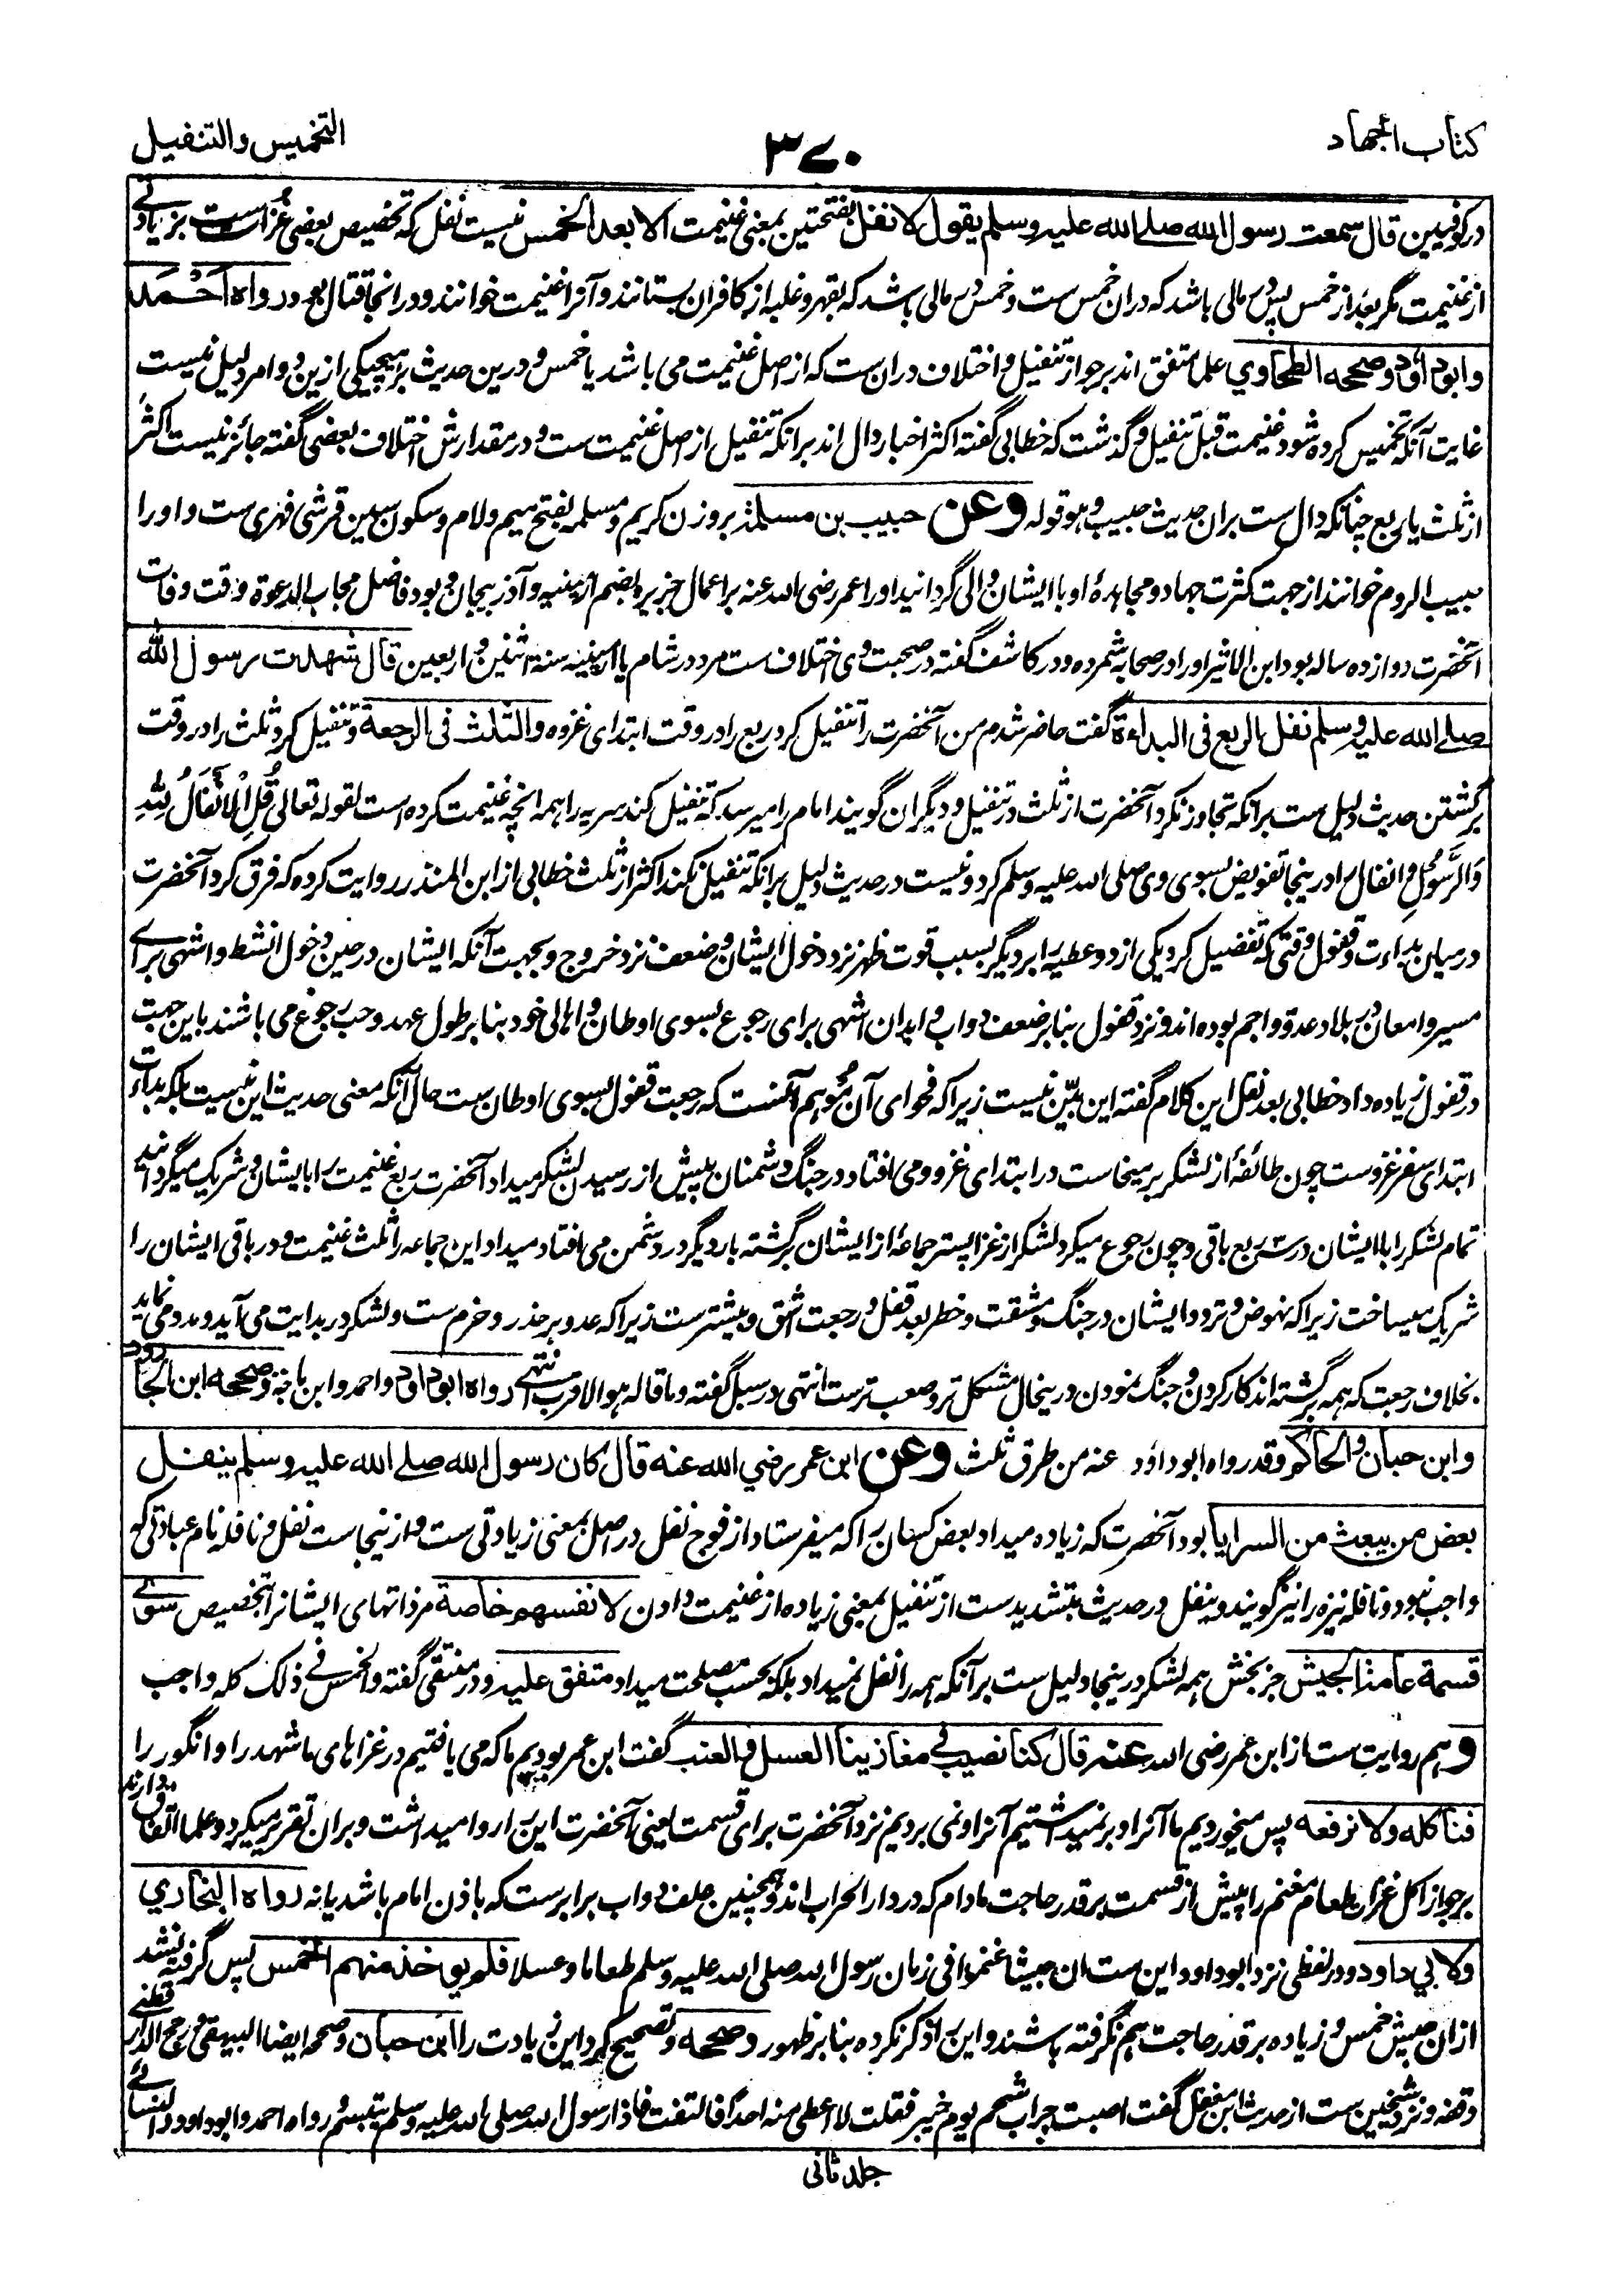 كتاب الجهاد
۳۷۰
التخميس والتنفيل
در كوفيين قال سمعت رسول الله صلے الله عليه وسلم يقول لا نفل بفتحتين بمعنى غنيمت الا بعد الخمس نيست نفل كه تخصيص بعضى غزاست بزيادتے
از غنيمت مگر بعد از خمس پس در مالى باشد كه دران خمس ست و خمس در مالى باشد كه بقهر و غلبه از كافران بستانند و آنرا غنيمت خوانند و در انجا قتال بود رواه احمد
وابو داؤد وصححه الطحاوي علما متفق اند بر جواز تنفيل و اختلاف دران ست كه از اصل غنيمت مى باشد يا خمس و درين حديث بر هيچيكى ازين دو امر دليل نيست
غايت آنكه تخميس كرده شود غنيمت قبل تنفيل و گذشت كه خطابى گفته اكثر اخبار دال اند برانكه تنفيل از اصل غنيمت ست و در مقدارش اختلاف بعضى گفته جائز نيست اكثر
از ثلث يا ربع چنانكه دال ست بران حديث حبيب و هو قوله وعن حبيب بن مسلمة بر وزن كريم و مسلمه بفتح ميم و لام و سكون سين قرشى فهرى ست و او را
حبيب الروم خوانند از جهت كثرت جهاد و مجاهدهٔ او با ايشان والى گردانيد او را عمر رضى الله عنه بر اعمال جزيره و بضم ارمينيه و آذربيجان و بود فاضل مجاب الدعوة وقت وفات
آنحضرت دوازده ساله بود ابن الاثير او را در صحابه شمرده و در كاشف گفته در صحبت وى اختلاف ست مرد در شام يا ارمينيه سنة اثنين و اربعين قال شهدت رسول الله
صلے الله عليه وسلم نفل الربع فى البداءة گفت حاضر شدم من آنحضرت را تنفيل كرد ربع را در وقت ابتداى غزوه والثلث فى الرجعة و تنفيل كرد ثلث را در وقت
برگشتن حديث دليل ست برانكه تجاوز نكرد آنحضرت از ثلث در تنفيل و ديگران گويند امام را ميرسد كه تنفيل كند سريه را همه انچه غنيمت كرده است لقوله تعالى قُلِ الْاَنْفَالُ لِلّٰهِ
وَالرَّسُوْلِ و انفال را در ينجا تفويض بسوى وى صلى الله عليه وسلم كرد و نيست در حديث دليل برانكه تنفيل نكند اكثر از ثلث خطابى از ابن المنذر روايت كرده كه فرق كرد آنحضرت
درميان بداءت و قفول وقتى كه تفضيل كرد يكى از دو عطيه را بر ديگر بسبب قوت ظهر نزد دخول ايشان و ضعف نزد خروج و بجهت آنكه ايشان در حين دخول انشط و اشهى براے
مسير و امعان در بلاد عدو و اجم بوده اند و نزد قفول بنابر ضعف دواب و ابدان اشهى براى رجوع بسوى اوطان و اهالى خود بنابر طول عهد و حب رجوع مى باشند باين جهت
در قفول زياده داد خطابى بعد نقل اين كلام گفته اين بيّن نيست زيرا كه فحواى آن موهم آنست كه رجعت قفول بسوى اوطان ست حال آنكه معنى حديث اين نيست بلكه بداءت
ابتداى سفر غزوست چون طائفهٔ از لشكر برميخاست در ابتداى غزو و مى افتاد در جنگ دشمنان پيش از رسيدن لشكر ميداد آنحضرت ربع غنيمت را بايشان و شريك ميگردانيد
تمام لشكر را با ايشان در سه ربع باقى و چون رجوع ميكرد لشكر از غزا پستر جماعهٔ از ايشان برگشته بار ديگر در دشمن مى افتاد ميداد اين جماعه را ثلث غنيمت و در باقى ايشان را
شريك ميساخت زيرا كه نهوض و تردد ايشان در جنگ و مشقت و خطر بعد قفل و رجعت اشق و بيشتر ست زيرا كه عدو بر حذر و حزم ست و لشكر در بدايت مى آيد و مدد مى نمايد
بخلاف رجعت كه همه برگشته اند كار كردن و جنگ نمودن درينحال مشكل تر و صعب ترست انتهى در سبل گفته و ما قاله هو الاقرب انتهى رواه ابو داؤد و احمد و ابن ماجة وصححه ابن الجارود
وابن حبان والحاكم وقد رواه ابو داؤد عنه من طرق ثلث وعن ابن عمر رضي الله عنه قال كان رسول الله صلے الله عليه وسلم ينفل
بعض من يبعث من السرايا بود آنحضرت كه زياده ميداد بعض كسان را كه ميفرستاد از فوج نفل در اصل بمعنى زيادتى ست و ازينجاست نفل و نافله نام عبادتى كه
واجب نبود و نافله نبيره را نيز گويند و ينفل در حديث بتشديد ست از تنفيل بمعنى زياده از غنيمت دادن لانفسهم خاصة مر ذاتهاى ايشانرا بتخصيص سوے
قسمة عامة الجيش جز بخش همه لشكر درينجا دليل ست برآنكه همه را نفل نميداد بلكه بحسب مصلحت ميداد متفق عليه و در منتقى گفته والخمس فے ذلك كله واجب
و هم روايت ست از ابن عمر رضى الله عنه قال كنا نصيب فے مغازينا العسل والعنب گفت ابن عمر بوديم ما كه مى يافتيم در غزاهاى ما شهد را و انگور را
فنأكله ولا نرفعه پس ميخورديم ما آنرا و بر نميداشتيم آنرا و نمى برديم نزد آنحضرت براى قسمت يعنى آنحضرت اين را روا ميداشت و بران تقرير ميكرد و علما اتفاق دارند
بر جواز اكل غزاة طعام مغنم را پيش از قسمت بر قدر حاجت مادام كه در دار الحراب اند و همچنين علف دواب برابرست كه باذن امام باشد يا نه رواه البخاري
ولابي داود و در لفظى نزد ابو داود اين ست ان جيشا غنموا فى زمان رسول الله صلى الله عليه وسلم طعاما وعسلا فلم يؤخذ منهم الخمس پس گرفته نشد
ازان جيش خمس و زياده بر قدر حاجت هم نگرفته باشند و اين را ذكر نكرده بنابر ظهور وصححه و تصحيح كرد اين زيادت را ابن حبان وصححه ايضا البيهقى و رجح الدارقطنے
وقفه و نزد شيخين ست از حديث ابن مغفل گفت اصبت جراب شحم يوم خيبر فقلت لا اعطى منه احدا فالتفت فاذا رسول الله صلى الله عليه وسلم يتبسم رواه احمد و ابو داود و النسائے
جلد ثانى